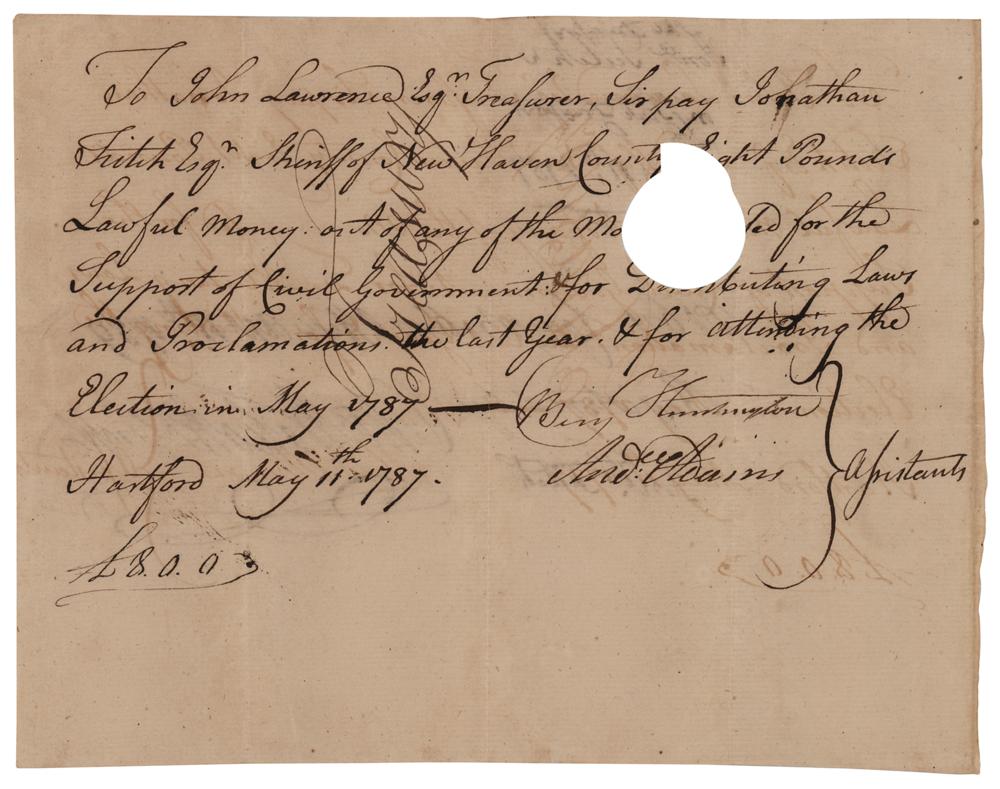 To John Lawrence Esqr. Treasurer, Sir pay Jonathan
Fitch Esqr. Sheriff of New Haven County Eight Pounds
Lawful Money. out of any of the Mo ted for the
Support of Civil Government. & for Distributing Laws
and Proclamations. the last Year. & for attending the
Election in May 1787 — Benj Huntington
Hartford May 11th 1787. Andw. Adams } Assistants
£8.0.0